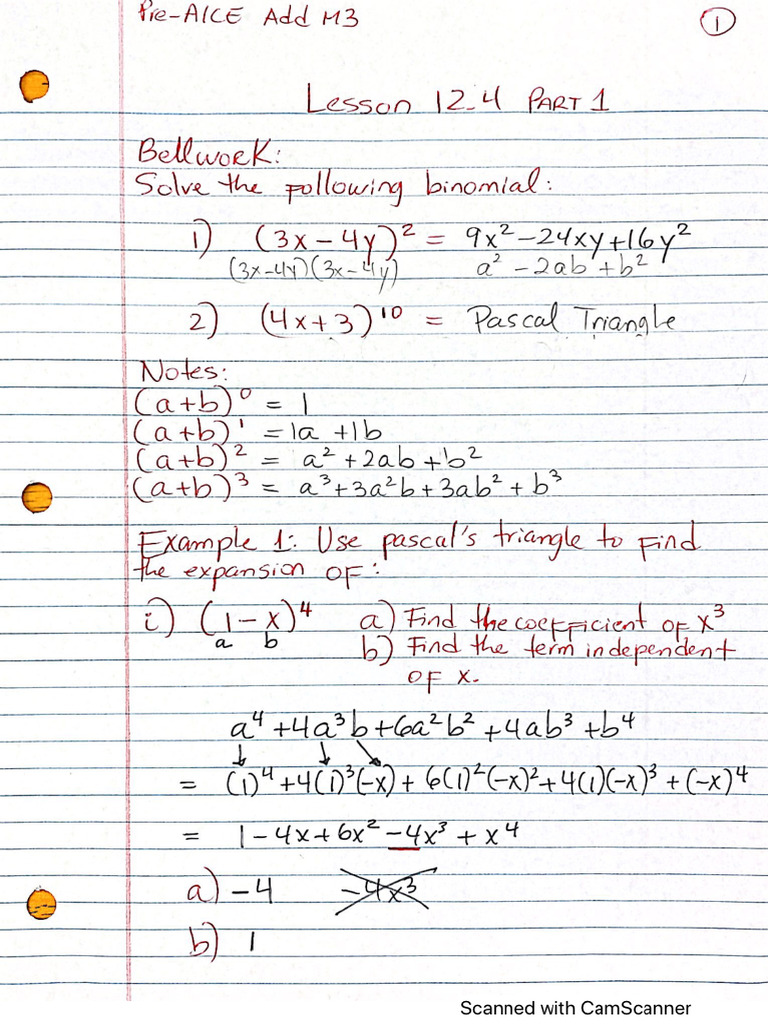 Pre-AICE Add M3
1
Lesson 12.4 PART 1
Bellwork:
Solve the following binomial:
1) (3x-4y)² = 9x²-24xy+16y²
(3x-4y)(3x-4y) a² - 2ab + b²
2) (4x+3)¹⁰ = Pascal Triangle
Notes:
(a+b)⁰ = 1
(a+b)¹ = 1a + 1b
(a+b)² = a² + 2ab + b²
(a+b)³ = a³+3a²b+3ab² + b³
Example 1: Use pascal's triangle to find
the expansion of:
i) (1-x)⁴ a) Find the coefficient of x³
a b b) Find the term independent
of x.
a⁴ +4a³b+6a²b² +4ab³ +b⁴
= (1)⁴ +4(1)³(-x)+ 6(1)²(-x)²+4(1)(-x)³ + (-x)⁴
= 1-4x+6x² -4x³ + x⁴
a) -4 -4x³
b) 1
Scanned with CamScanner